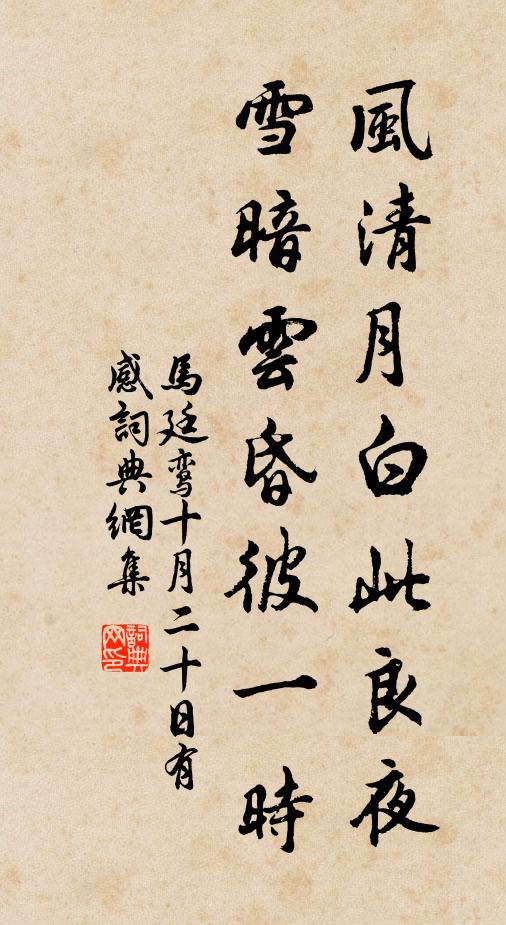 風清月白此良夜
雪暗雲昏彼一時
馬廷鸞十月二十日有
感詞典網集
詞典
网印